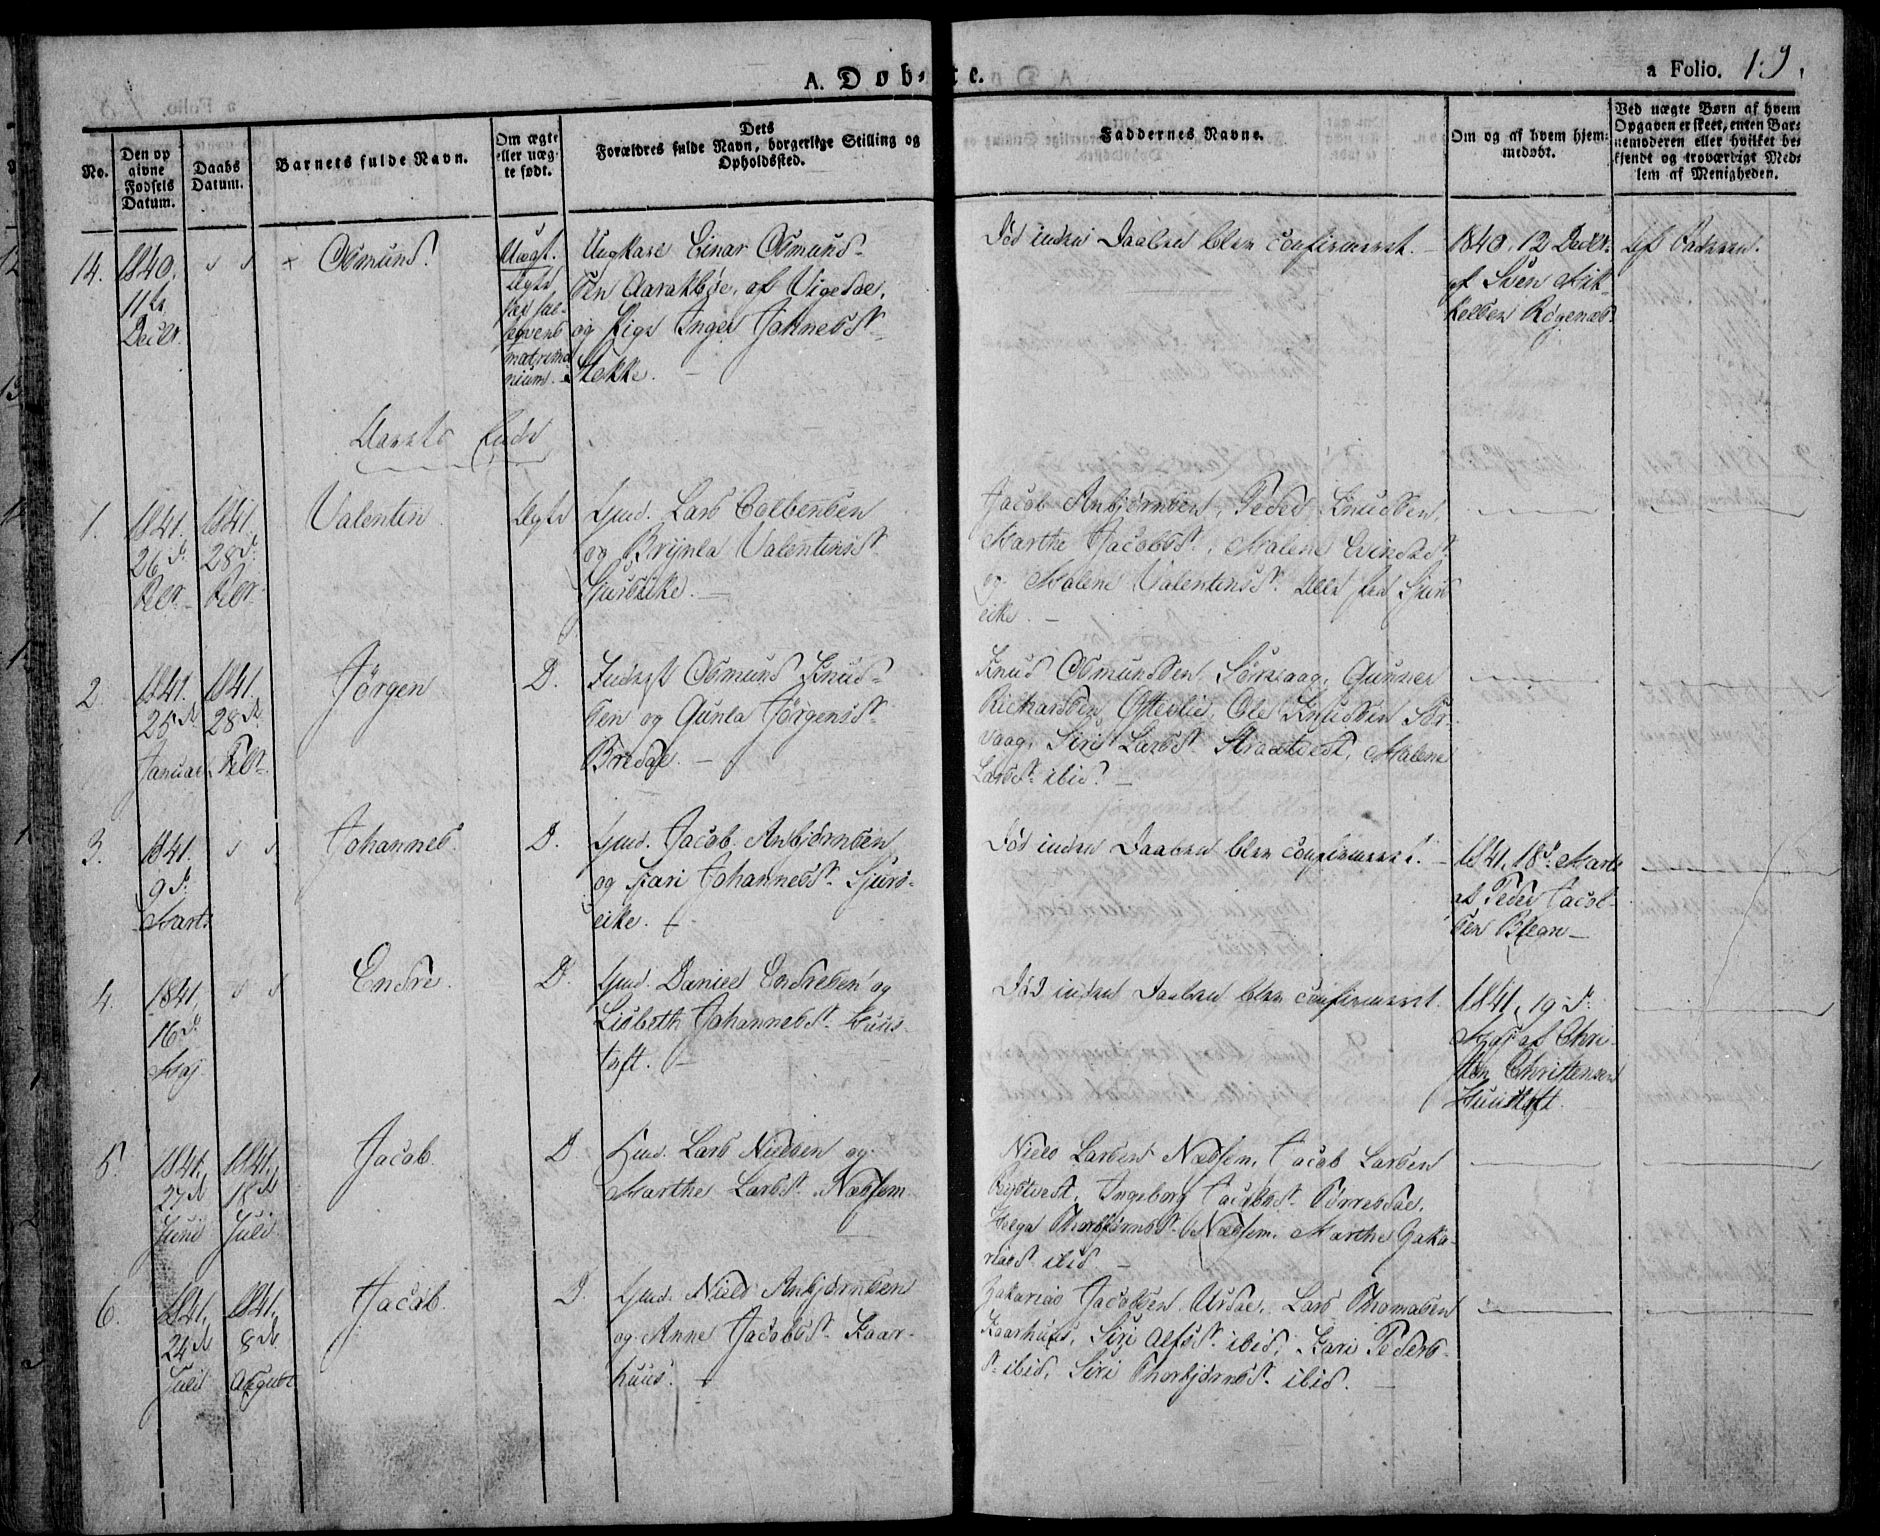 A. Døb-te.
a Folio. 19.
No.
Den op
givne
Fødsels
Datum.
Daabs
Datum.
Barnets fulde Navn.
Om ægte
eller uæg-
te født.
Dets
Forældres fulde Navn, borgerlige Stilling og
Opholdssted.
Faddernes Navne.
Om og af hvem hjem-
medøbt.
Ved uægte Børn af hvem
Opgaven er skeet, enten Bar-
nemoderen eller hvilket be-
kjendt og troværdigt Med-
lem af Menigheden.
14.
1840.
11te
Decbr.
Osmund.
Uægt.
Ægte
matrimo
nium.
Ungkarl Einar Osmund-
sen Aarakbøe, af Vigedal,
og Pige Inger Johannesdr
Stokke.
Død inden Daaben blev confirmeret.
1840. 12 Decbr.
af Sven Mik-
kelsen Røgenæs.
af Faderen.
Aarets Ende
1.
1841.
26de
Febr.
1841.
28de
Febr.
Valentin
Ægte
Gmd. Lars Colbensen
og Brynla Valentinsdr
Sjurseike.
Jacob Anbjørnsen, Peder Knudsen,
Marthe Jacobsdr, Malene Evindsdr
og Malene Valentinsdr alle fra Sjurs
eike.
2.
1841.
25de
Januar
1841.
28de
Febr.
Jørgen
D.
Inderst Osmund Knud-
sen og Gunla Jørgensdr
Bredal.
Knud Osmundsen Sørvaag, Gunner
Richardsen Østerlie, Ole Knudsen Sør
vaag, Siri Larsdr Straatveit, Malene
Larsdr ibid.
3.
1841.
9de
Marts
Johannes
D.
Gmd. Jacob Anbjørnsen
og Kari Johannesdr Sjurs-
eike.
Død inden Daaben blev confirmeret.
1841. 18de Marts
af Peder Jacob-
sen
4.
1841.
16de
Maj
Endre.
D.
Gmd. Daniel Endresen og
Lisbeth Johannesdr Huus-
toft.
Død inden Daaben blev confirmeret
1841, 19de
Maj af Chri-
sten Christensen
Huustoft.
5.
1841.
27de
Juni
1841.
18de
Juli
Jacob.
D
Gmd. Lars Nielsen og
Marthe Larsdr Næssem
Niels Larsen Næssem, Jacob Larsen
Ingeborg Jacobsdr Torresdal,
Helga Thorbjørnsdr Næssem, Marthe Zaka-
riasdr ibid.
6.
1841.
24de
Juli
1841.
8de
August
Jacob.
D.
Gmd. Niels Anbjørnsen
og Anne Jacobsdr Kaar-
huus.
Zakarias Jacobsen Ursdal, Lars Thomasen
Kaarhuus, Siri Alfsdr ibid, Kari Peders-
dr ibid, Siri Thorbjørnsdr ibid.